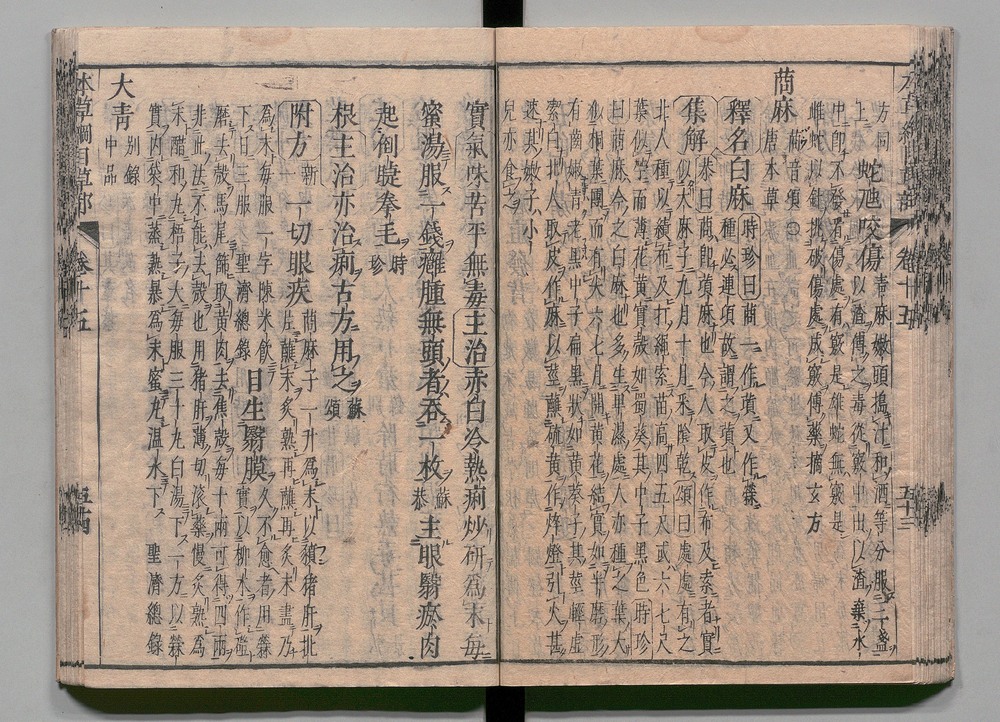 方同 蛇虺咬傷 青麻嫩頭搗汁和酒等分服三盞
上 以渣傅之毒從竅中出以渣棄水
中即不發看傷處有竅是雄蛇無竅是
雌蛇以針挑破傷處成竅傅藥摘玄方
苘麻 苘音頃○
唐本草
釋名白麻 時珍曰苘一作䔛又作檾
種必連頃故謂之䔛也
集解 恭曰苘即䔛麻也今人取皮作布及索者實
似大麻子九月十月采陰乾頌曰處處有之
北人種以績布及打繩索苗高四五尺或六七尺
葉似苧而薄花黃實殼如蜀葵其中子黑色時珍
曰苘麻今之白麻也多生卑濕處人亦種之葉大
似桐葉團而有尖六七月開黃花結實如半磨形
有齒嫩青老黑中子扁黑狀如黃葵子其莖輕虛
潔白北人取皮作麻以莖蘸硫黃作焠燈引火甚
速其嫩子小
兒亦食之
實氣味苦平無毒主治赤白冷熱痢炒研爲末每
蜜湯服一錢癰腫無頭者吞一枚蘇恭主眼翳瘀肉
起倒睫拳毛時珍
根主治亦治痢古方用之蘇頌
附方 新一 一切眼疾 苘麻子一升爲末以豶猪肝批
片蘸末炙熟再蘸再炙末盡乃
爲末每服一字陳米飲 久不愈者用檾
下日三服聖濟總錄 目生翳膜 實以柳木作磑
磨去殼馬尾篩取黃肉去焦殼每十兩可得四兩
非此法不能去殼也用猪肝薄切滾藥慢炙熟爲
末醋和丸梧子大每服三十丸白湯下一方以檾
實內袋中蒸熟暴爲末蜜丸溫水下 聖濟總錄
大青 別錄
中品
本草綱目草部 卷十五 五十四